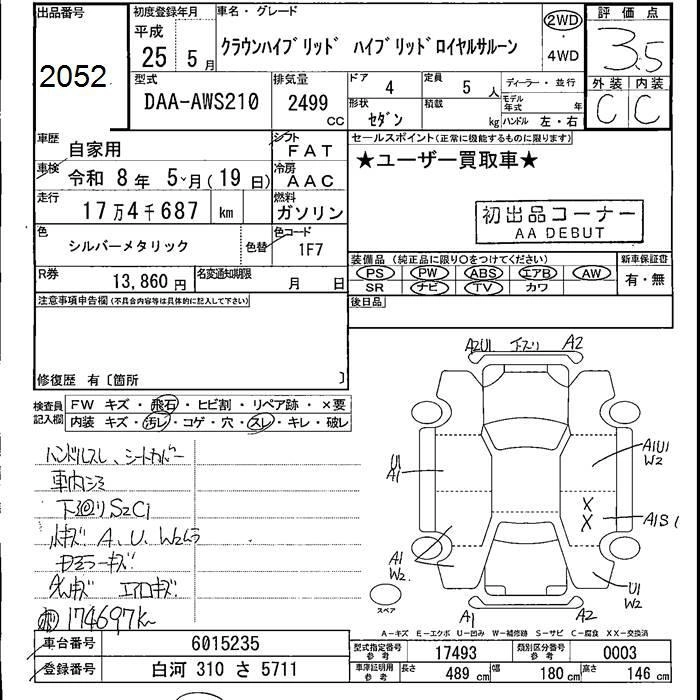 出品番号
2052
初度登録年月
平成
25 5月
車名・グレード
クラウンハイブリッド ハイブリッドロイヤルサルーン
2WD
・
4WD
評価点
3.5
外装 内装
C C
型式
DAA-AWS210
排気量
2499
CC
ドア
4
定員
5人
形状
セダン
積載
kg
ディーラー・並行
モデル年式 年
ハンドル 左・右
車歴
自家用
シフト
FAT
車検
令和 8年 5月(19日)
冷房
AAC
走行
17万4千687 km
燃料
ガソリン
色
シルバーメタリック
色替
色コード
1F7
R券
13,860円
名変通知期限
月 日
セールスポイント(正常に機能するものに限ります)
★ユーザー買取車★
初出品コーナー
AA DEBUT
装備品(純正品に限り○をつけてください)
新車保証書
PS PW ABS エアB AW
SR ナビ TV カワ
有・無
後日品
注意事項申告欄(不具合内容等は具体的に記入して下さい)
修復歴 有〔箇所 〕
検査員記入欄
FW キズ・飛石・ヒビ割・リペア跡・×要
内装 キズ・汚レ・コゲ・穴・スレ・キレ・破レ
ハンドルスレ、シートカバー
車内シミ
下廻りS2C1
小キズ A、U、W2
キズ
エアロキズ
174697km
A2U1 下スリ A2
U1
A1
A1U1
W2
X
X
A1S1
A1
W2
U1
W2
A1 A2
スペア
A-キズ E-エクボ U-凹み W-補修跡 S-サビ C-腐食 XX-交換済
車台番号
6015235
登録番号
白河 310 さ 5711
型式指定番号
参考
17493
類別区分番号
参考
0003
車庫証明用
参考
長さ 489 cm 幅 180 cm 高さ 146 cm